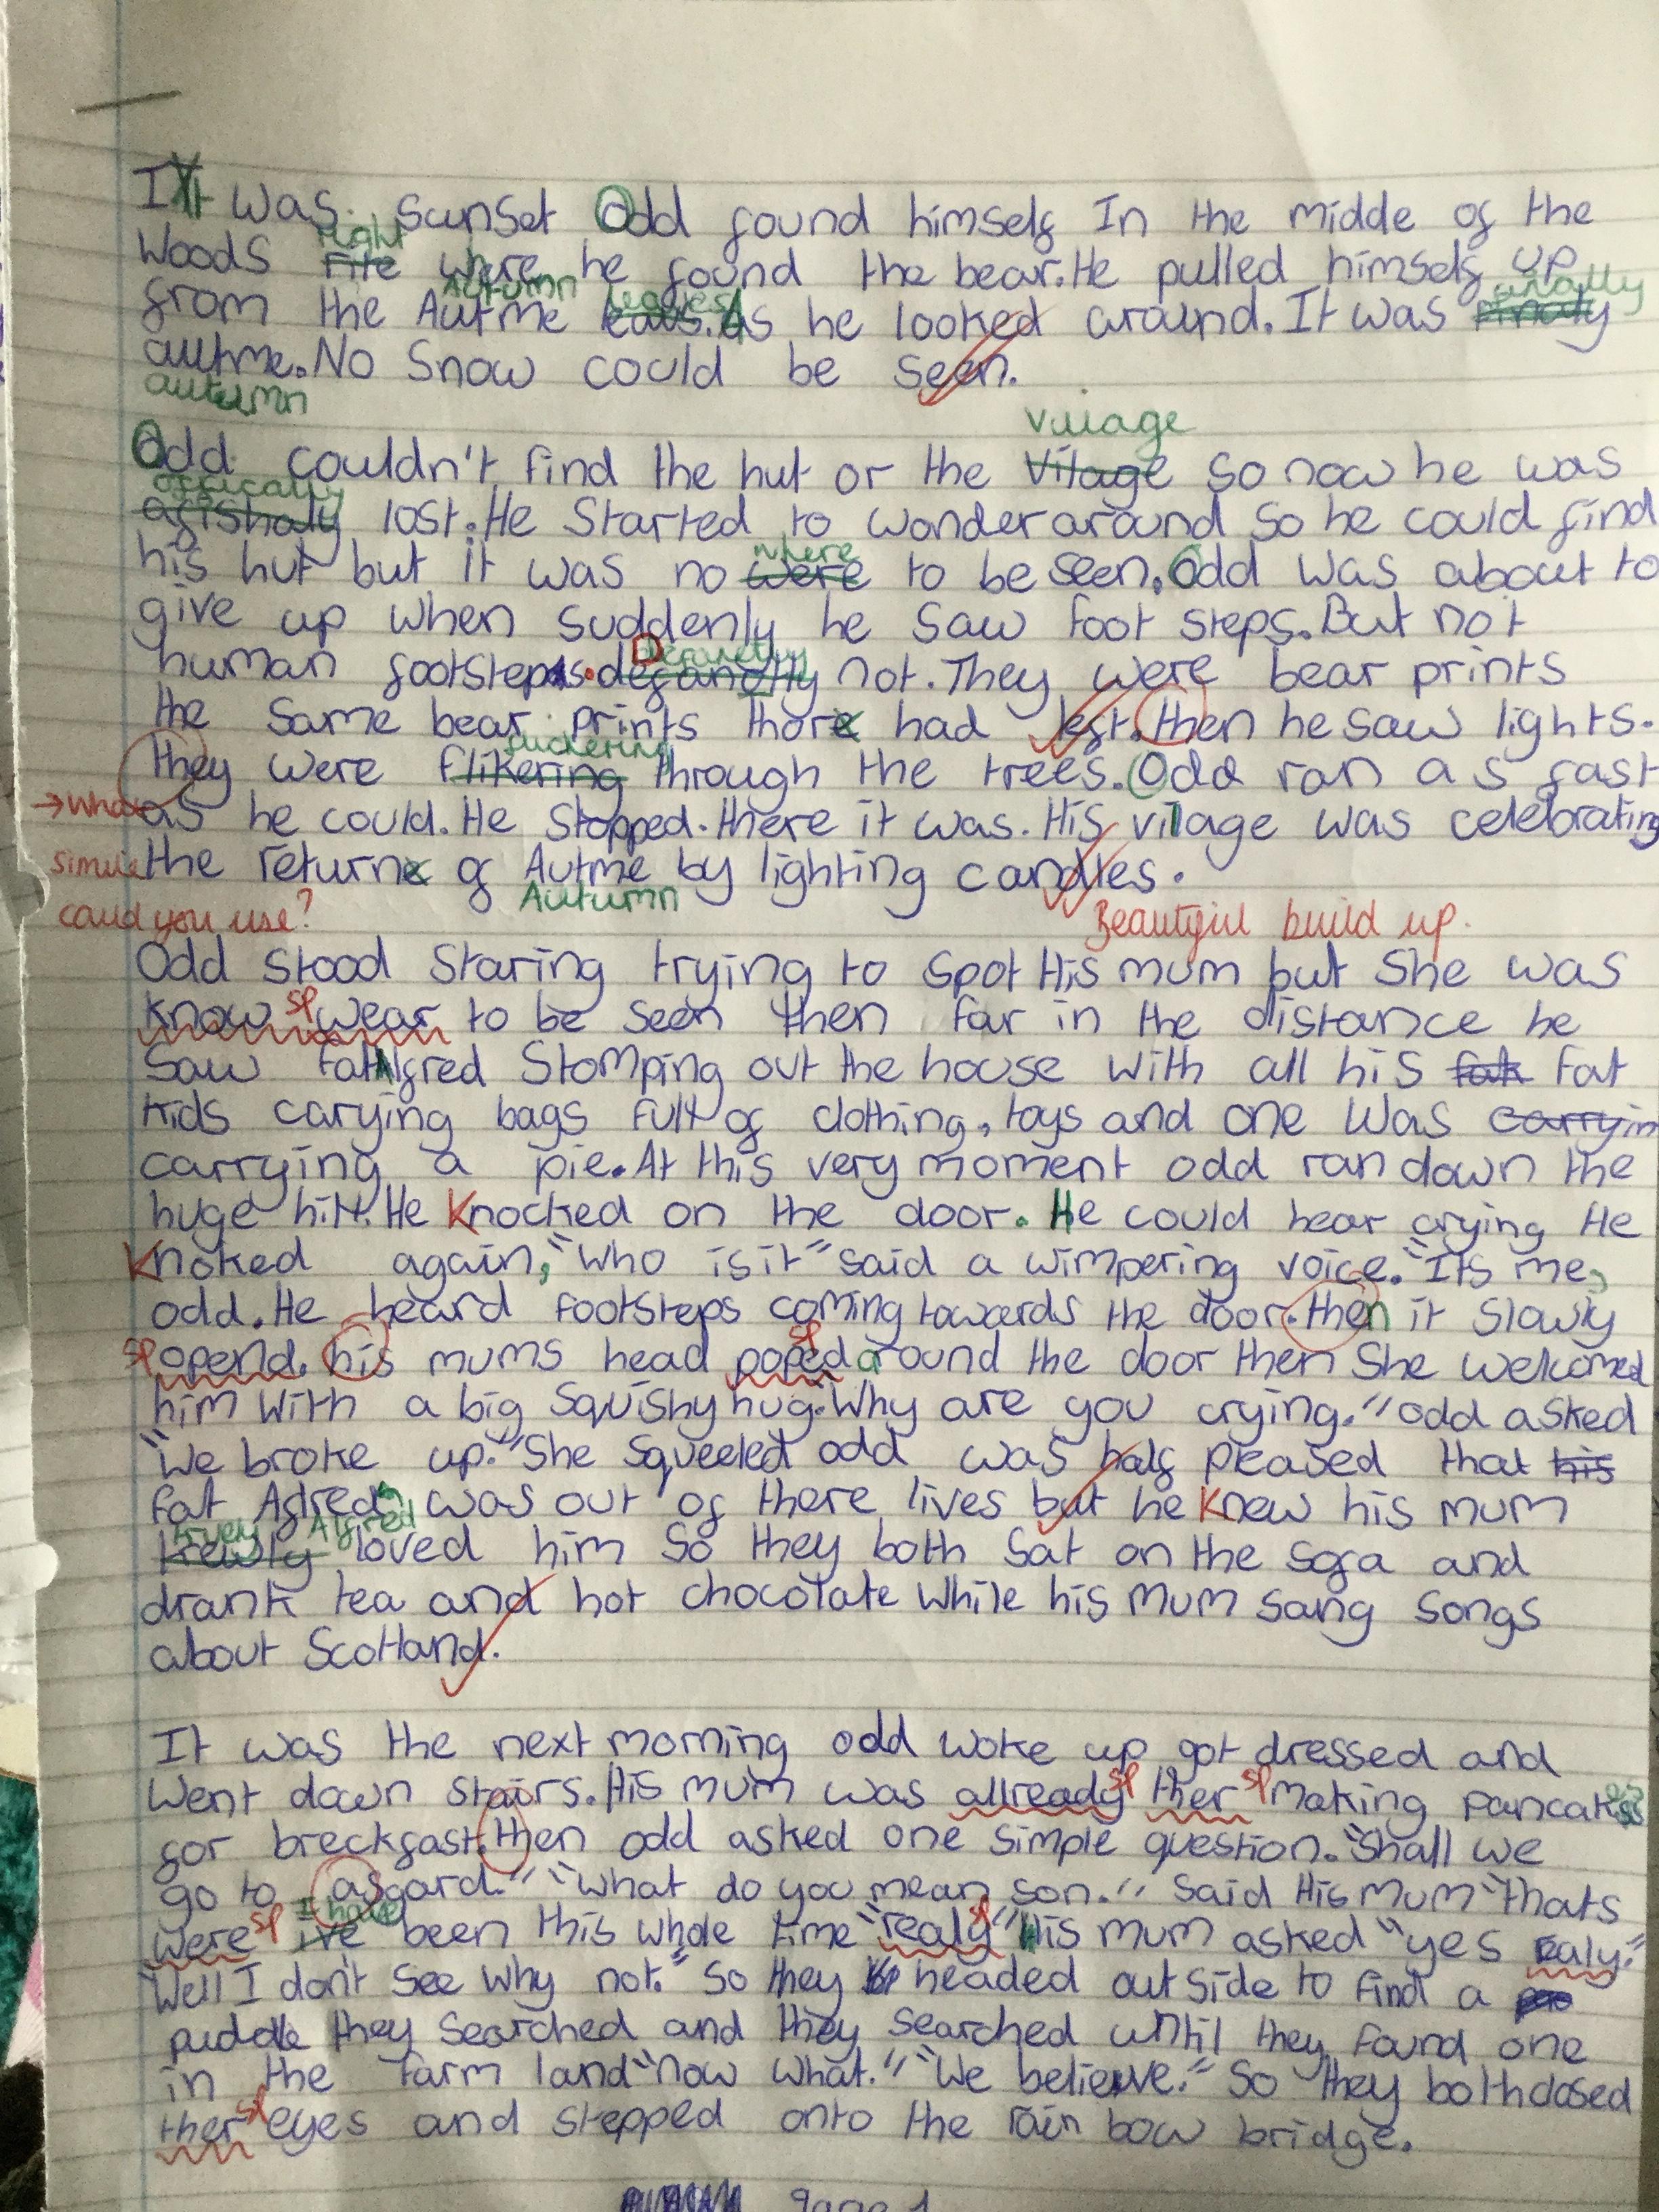 It was sunset Odd found himself In the midde of the
right
Woods rite where he found the bear. He pulled himself up
Autumn leaves
from the Autme leavs. As he looked around. It was finaly
finally
autme. No Snow could be seen.
autumn
Village
Odd couldn't find the hut or the Vilage so now he was
offically
afishaly lost. He Started to wonder around so he could find
where
his hut but it was no were to be seen. Odd was about to
give up when suddenly he saw foot steps. But not
human footsteps. Defanetly not. They were bear prints
the same bear prints thor had left. then he saw lights.
flickering
they were flikering through the trees. Odd ran as fast
→What
as he could. He stopped. there it was. His village was celebrating
simile
the return of Autme by lighting candles.
Autumn
could you use?
Beautiful build up.
Odd stood staring trying to spot His mum but she was
know sp wear to be seen then far in the distance he
saw fat Alfred stomping out the house with all his fat fat
kids carying bags full of clothing, toys and one was carryin
carrying a pie. At this very moment odd ran down the
huge hill. He Knocked on the door. He could hear crying He
Knoked again, "Who is it" said a wimpering voice. "Its me,
odd. He heard footsteps coming towards the door. then it slowly
sp opend. his mums head poped sp around the door then she welcomed
him with a big squishy hug. "Why are you crying." odd asked
"We broke up." She squeeled odd was half pleased that his
fat Alfred was out of there lives but he Knew his mum
truely Alfred
trewly loved him so they both sat on the sofa and
drank tea and hot chocolate while his mum sang songs
about Scotland.
It was the next morning odd woke up got dressed and
went down stairs. His mum was allready sp ther sp making pancakes
for breckfast. then odd asked one simple question. "Shall we
go to asgard." "What do you mean son." said His mum "thats
I have
were sp i've been this whole time "realy sp" His mum asked "yes realy."
"Well I don't see why not." so they headed out side to find a
puddle they searched and they searched until they found one
in the farm land "now what." "We believe." So they both closed
ther sp eyes and stepped onto the rain bow bridge.
page 1